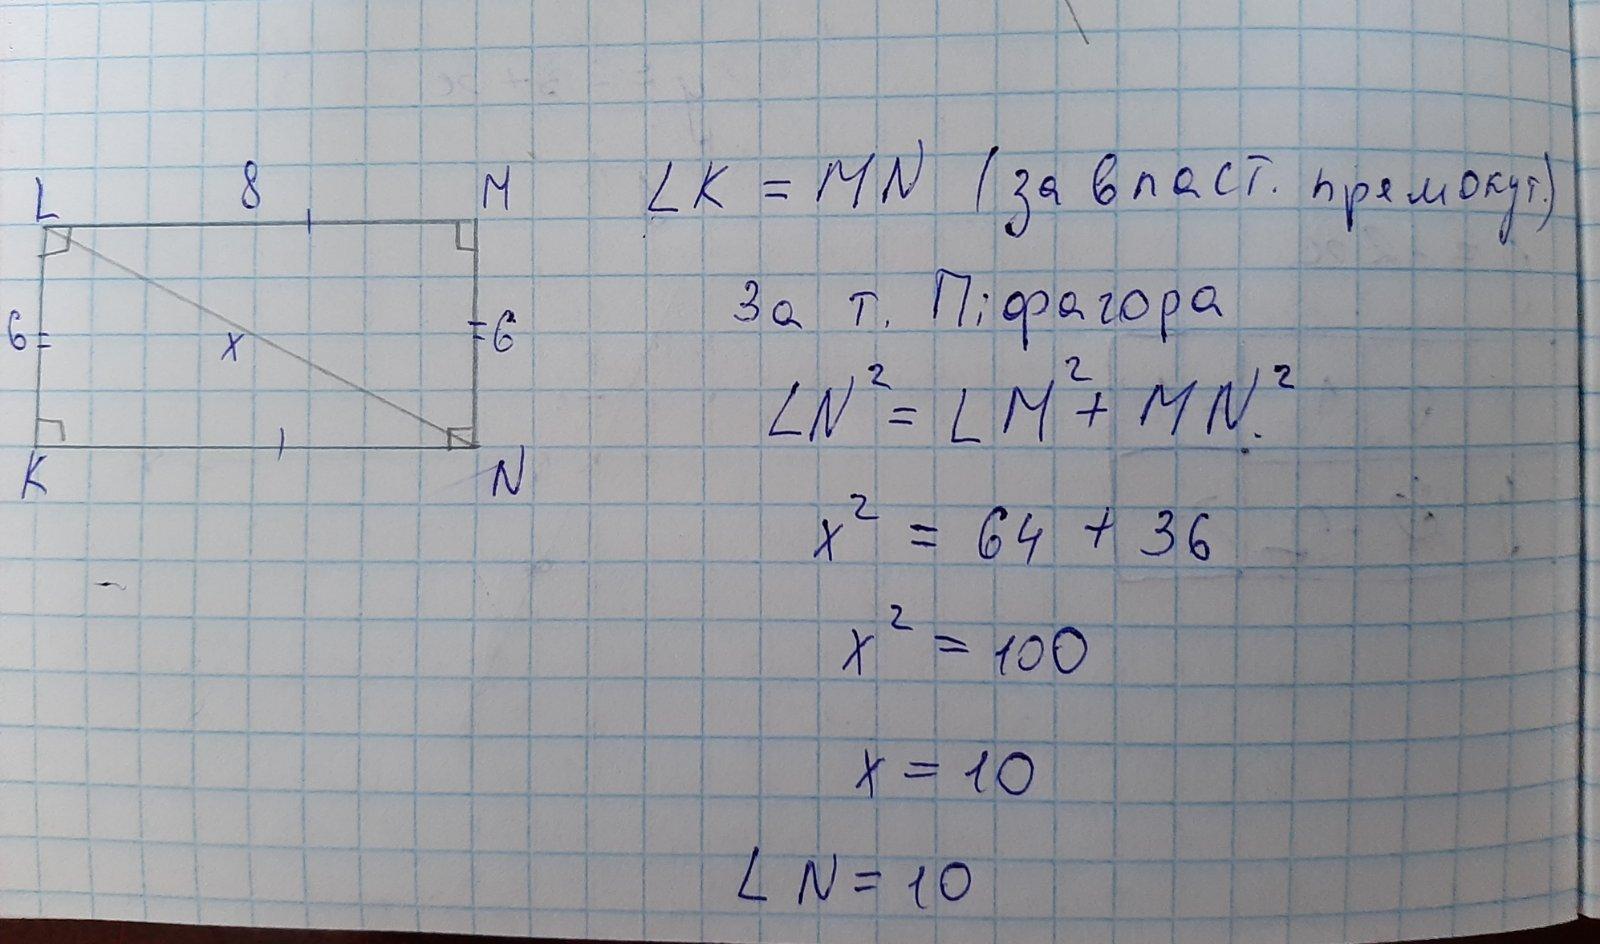 L 8 M
6 x 6
K N
LK = MN (за власт. прямокут.)
За т. Піфагора
LN² = LM² + MN²
x² = 64 + 36
x² = 100
x = 10
LN = 10